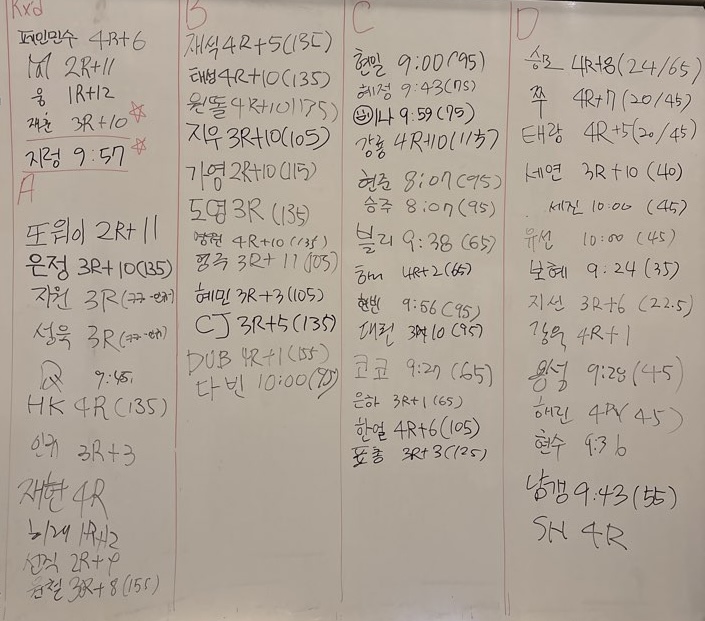 Rx'd
페인민수 4R+6
2R+11
웅 1R+12
재훈 3R+10
지령 9:57
A
또위이 2R+11
은정 3R+10(135)
지원 3R
성욱 3R
Q 9:45
HK 4R(135)
인규 3R+3
재현 4R
희래 1R+12
선직 2R+9
윤철 3R+8(155)
B
재식 4R+5(135)
태성 4R+10(135)
원똘 4R+10(135)
지우 3R+10(105)
가영 2R+10(115)
도영 3R(135)
4R+10(135)
형주 3R+11(105)
혜민 3R+3(105)
CJ 3R+5(135)
DUB 4R+1(155)
다빈 10:00(95)
C
현밀 9:00(95)
혜정 9:43(75)
나 9:59(75)
강룡 4R+10(115)
현준 8:07(95)
승주 8:07(95)
블리 9:38(65)
4R+2(65)
현빈 9:56(95)
대린 3R+10(95)
코코 9:27(65)
은하 3R+1(65)
한얼 4R+6(105)
표총 3R+3(125)
D
승모 4R+8(24/65)
쭈 4R+7(20/45)
태랑 4R+5(20/45)
세연 3R+10(40)
세진 10:00(45)
유선 10:00(45)
보혜 9:24(35)
지선 3R+6(22.5)
강욱 4R+1
용성 9:28(45)
해린 4R(45)
현수 9:36
남갱 9:43(55)
SH 4R